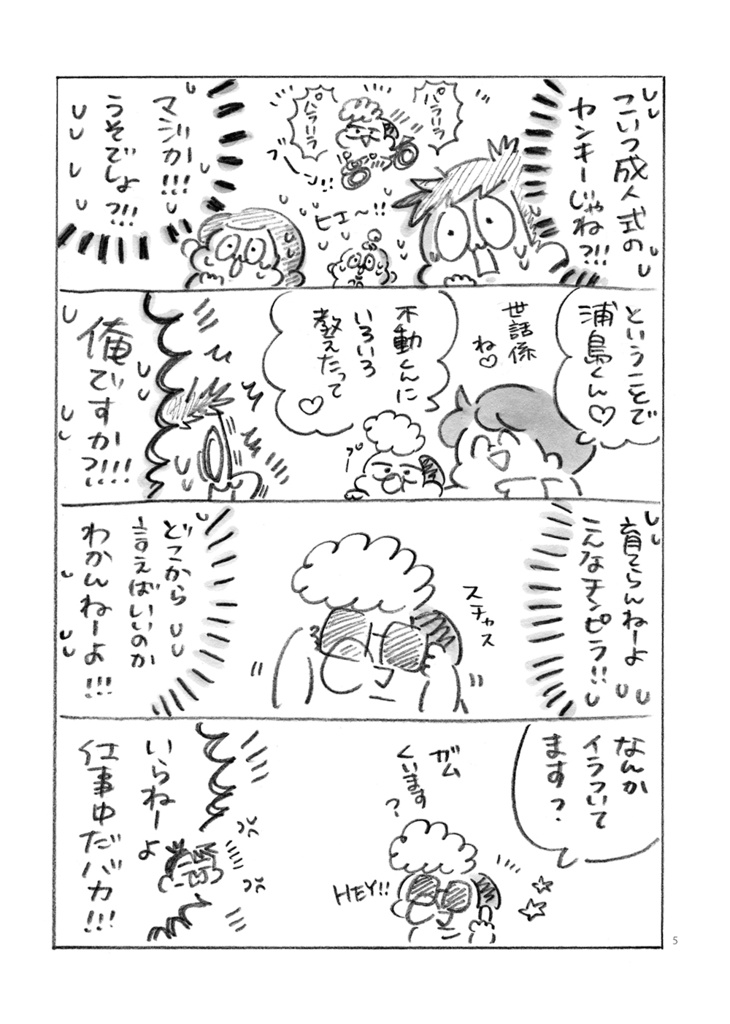 こいつ成人式の
ヤンキーじゃね?!!
パラリラ
パラリラ
ブーーン!!
ヒェ〜!!
マジか!!!
うそでしょ?!!!
ということで
浦島くん♡
世話係
ね♡
不動くんに
いろいろ
教えたって
♡
俺ですか?!!!
育てらんねーよ
こんなチンピラ!!
スチャス
どこから
言えばいいのか
わかんねーよ!!!
なんか
イラついて
ます?
ガム
くいます
?
HEY!!
いらねーよ
仕事中だバカ!!!
5